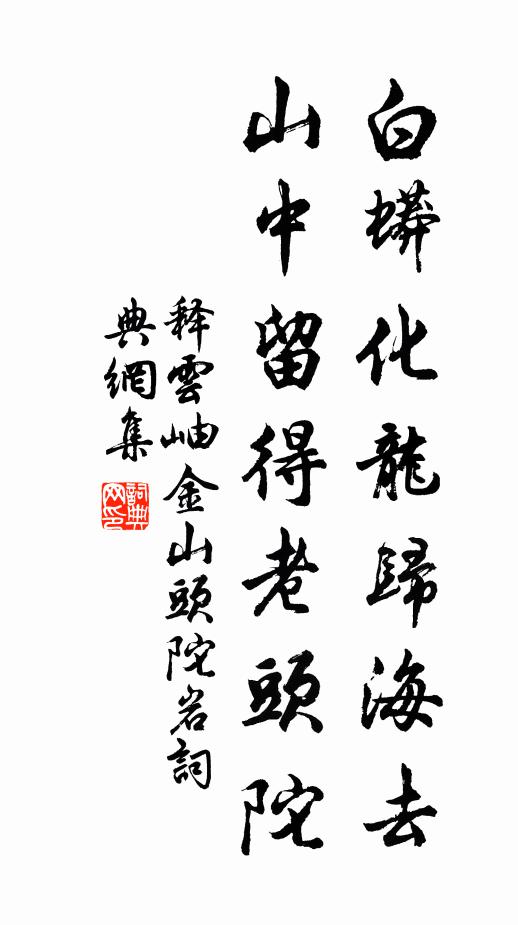 白蟒化龍歸海去
山中留得老頭陀
释雲岫金山頭陀岩詞
典網集
詞典
网印